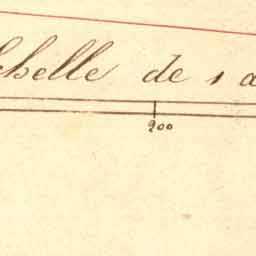 chelle de 1 à
200